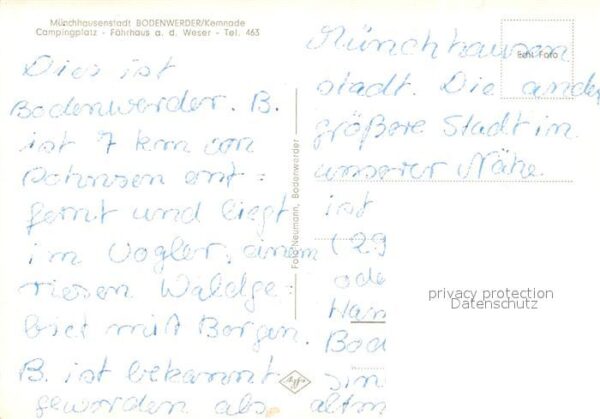 Münchhausenstadt BODENWERDER/Kemnade
Campingplatz - Fährhaus a. d. Weser - Tel. 463
Dies ist
Bodenwerder. B.
ist 7 km von
entfernt und liegt
im Vogler, einem
riesen Waldge=
biet mit Bergen.
B. ist bekannt
geworden als
Münchhausen
stadt. Die ande
größere Stadt in
unserer Nähe
ist
(29
ode
Ham
Bod
sin
altm
Echt Foto
Foto-Neumann, Bodenwerder
Agfa
privacy protection
Datenschutz